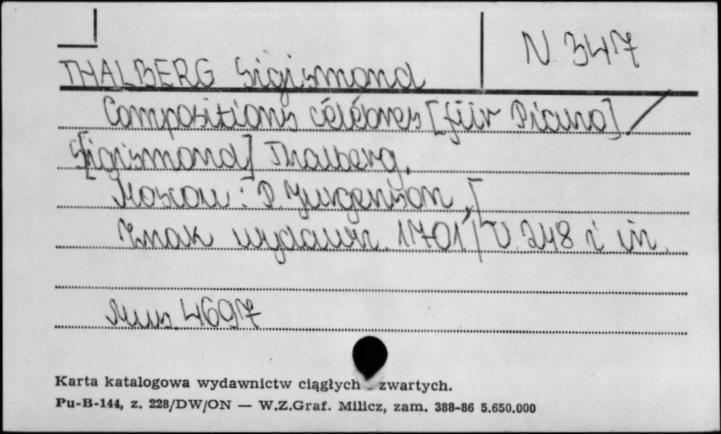 N 347
THALBERG Sigismond
Compositions célèbres [für Piano] /
S[igismond] Thalberg.
Moscou : P. Jurgenson, [
Znak wydawn. 11701/ U. 248 i in.
Mus. 4697
Karta katalogowa wydawnictw ciągłych - zwartych.
Pu-B-144, z. 228/DW/ON — W.Z.Graf. Milicz, zam. 388-86 5.650.000